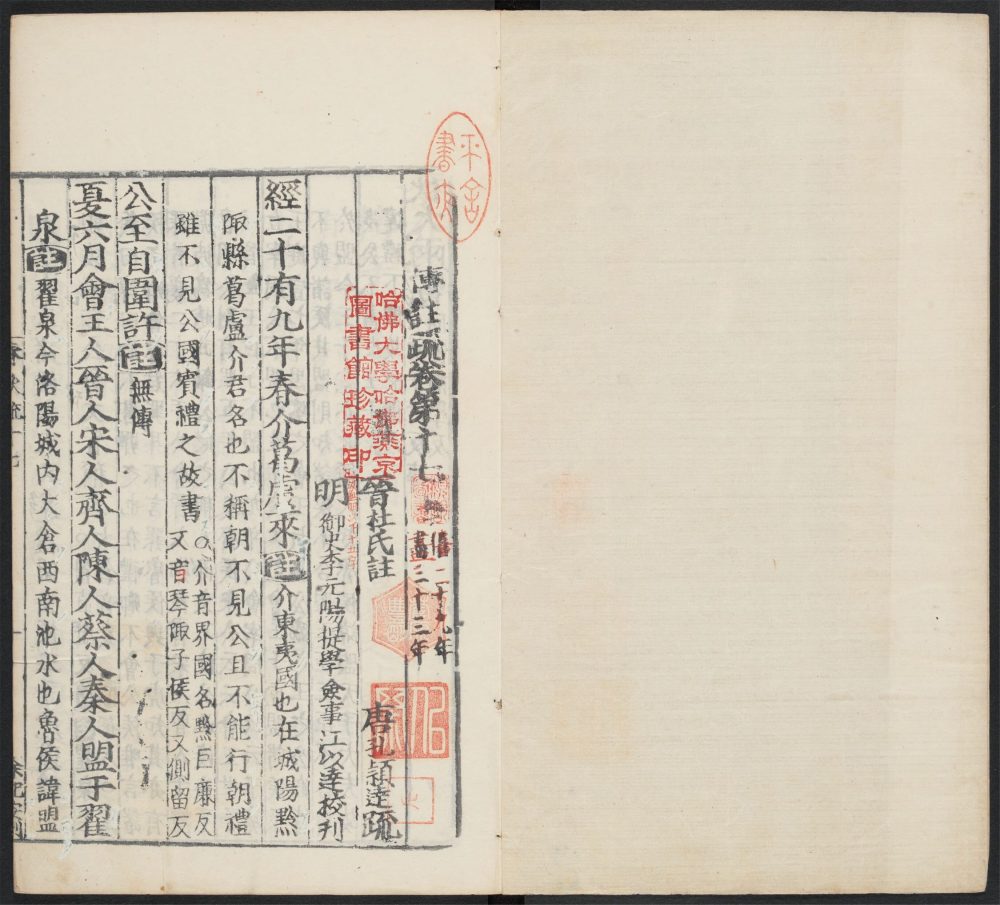 傳註疏卷第十七 僖二十九年
盡三十三年
晉杜氏註
唐孔穎達疏
明御史李元陽提學僉事江以達校刊
經二十有九年春介葛盧來註介東夷國也在城陽黔
陬縣葛盧介君名也不稱朝不見公且不能行朝禮
雖不見公國賓禮之故書○介音界國名黔巨廉反
又音琴陬子侯反又側留反
公至自圍許註無傳
夏六月會王人晉人宋人齊人陳人蔡人秦人盟于翟
泉註翟泉今洛陽城內大倉西南池水也魯侯諱盟
哈佛大學哈佛燕京
圖書館珍藏印